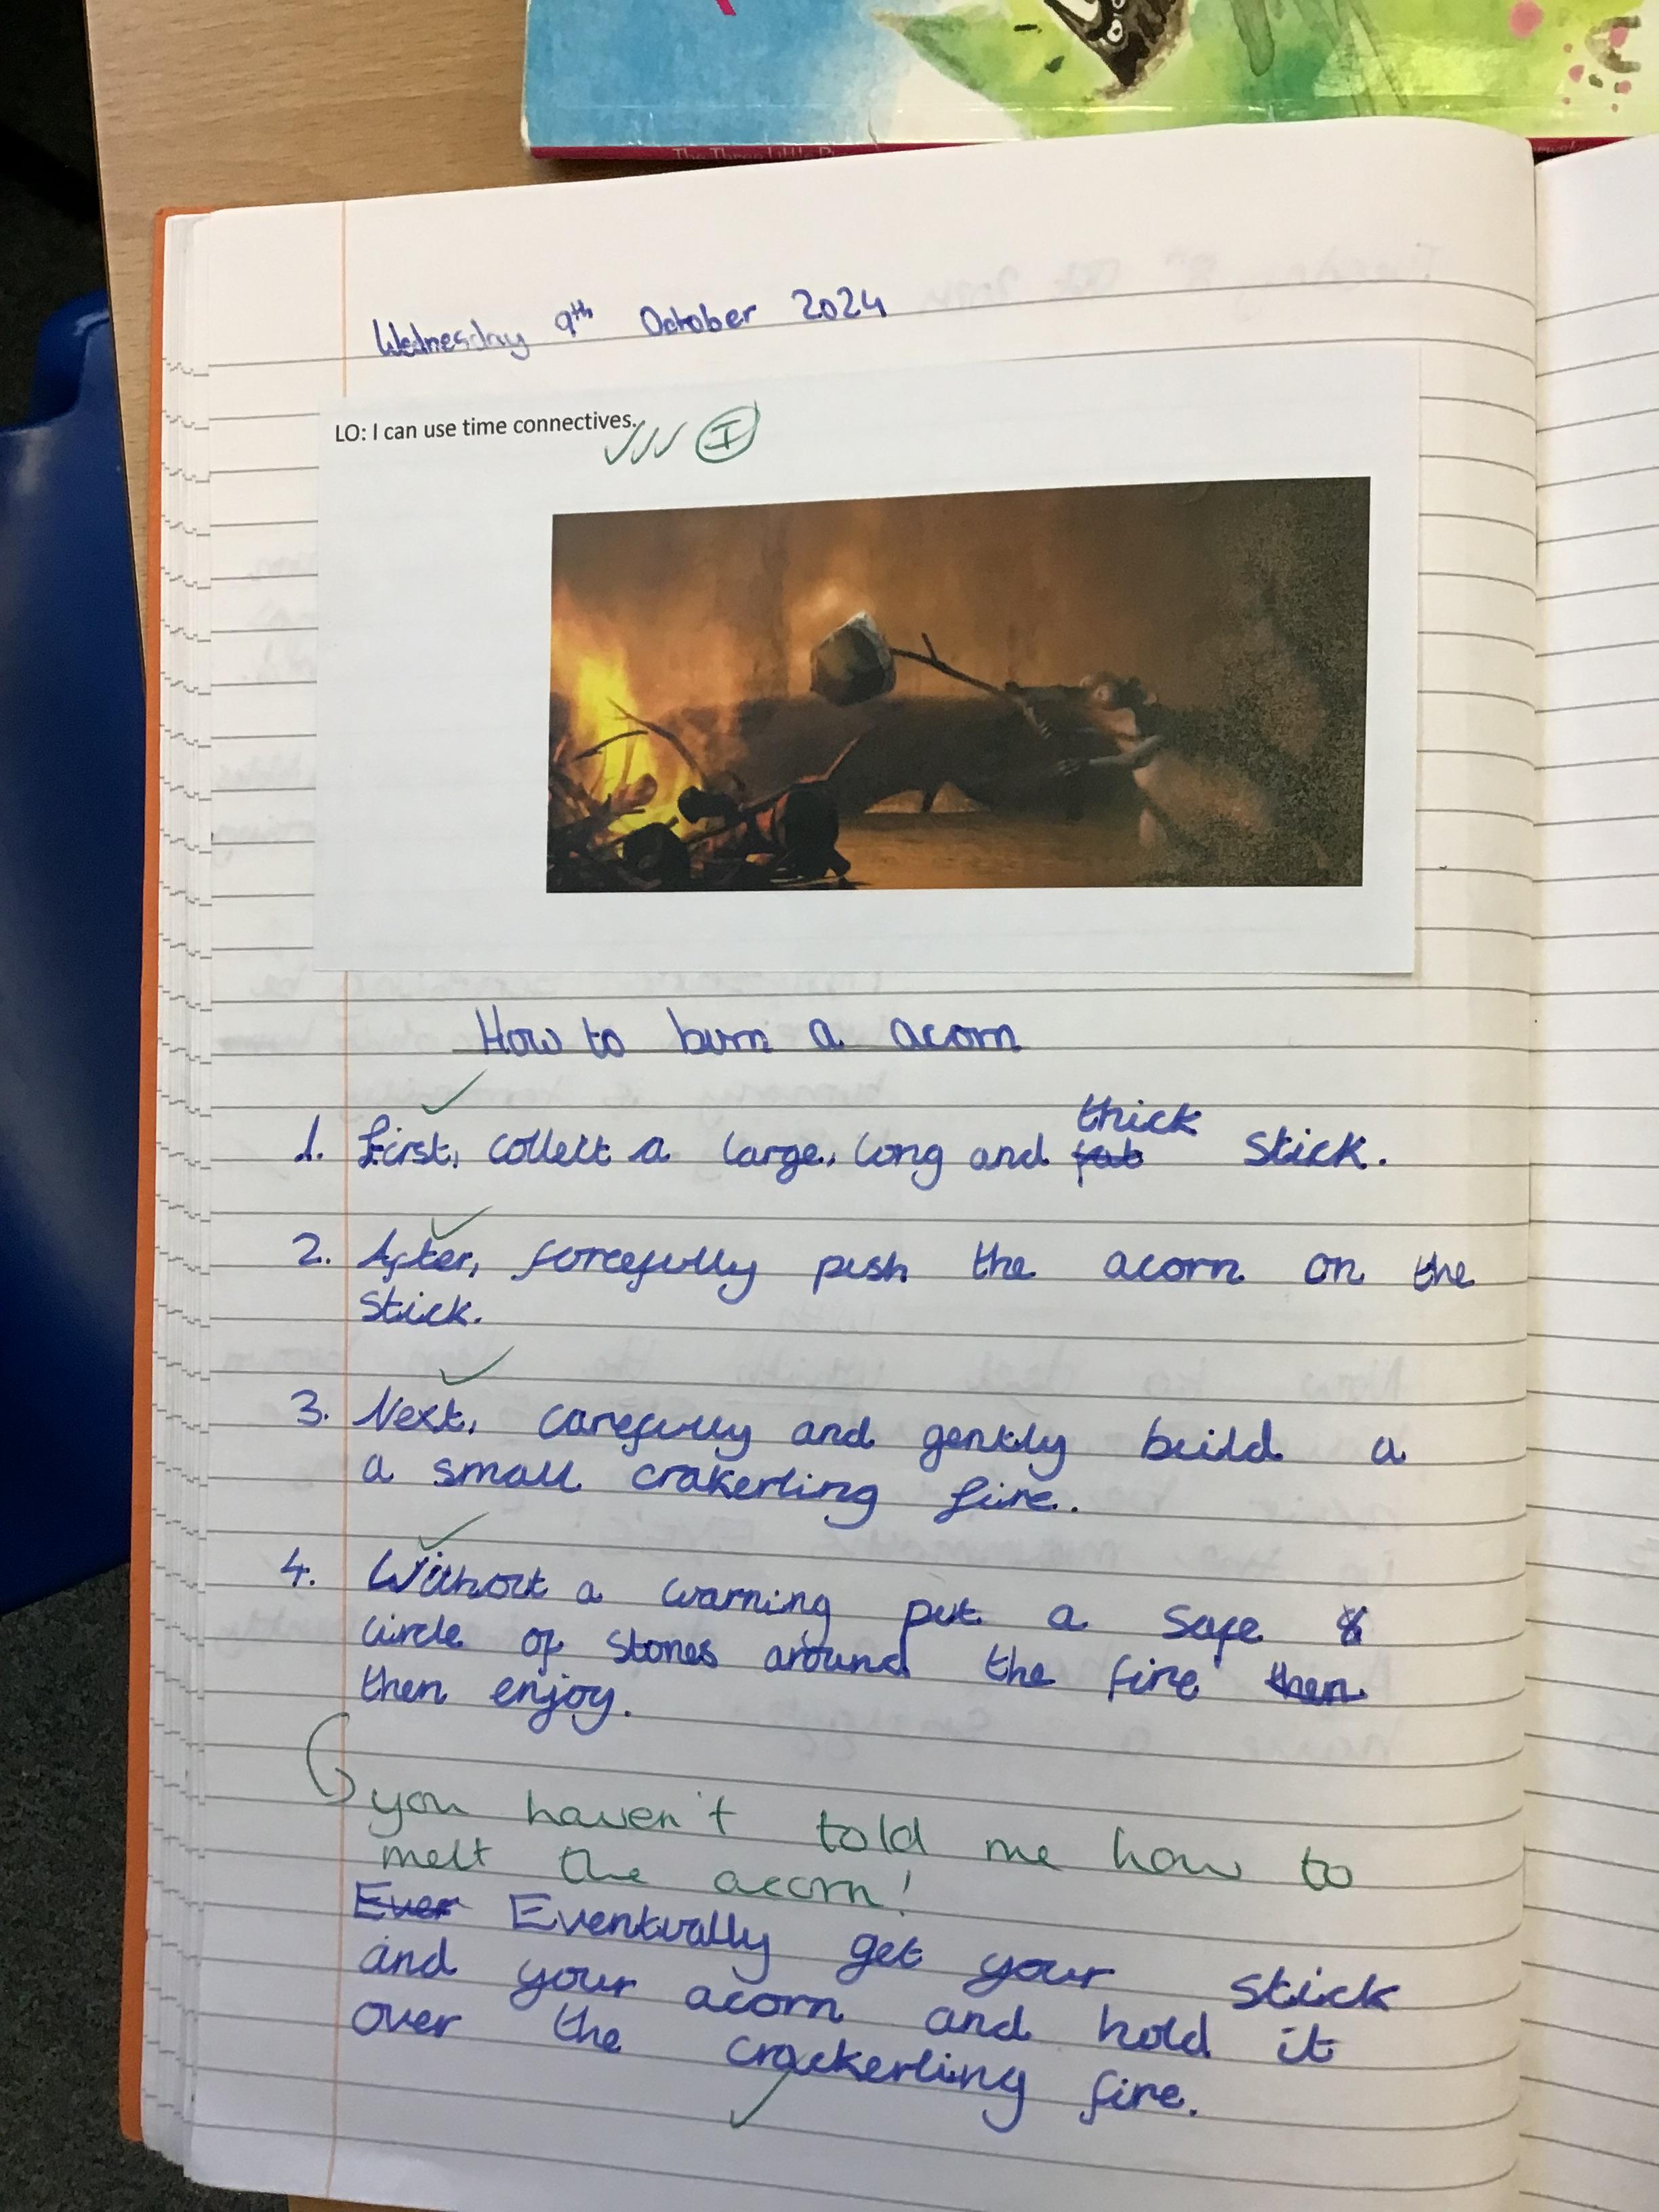 The Three Little
Wednesday 9th October 2024
LO: I can use time connectives.
I
How to burn a acorn
thick
1. First, collect a large, long and fat stick.
2. After, forcefully push the acorn on the
stick.
3. Next, carefully and gently build a
a small crakerling fire.
4. Without a warning put a safe
circle of stones around the fire then
then enjoy.
you haven't told me how to
melt the acorn!
Ever Eventually get your stick
and your acorn and hold it
over the crackerling fire.